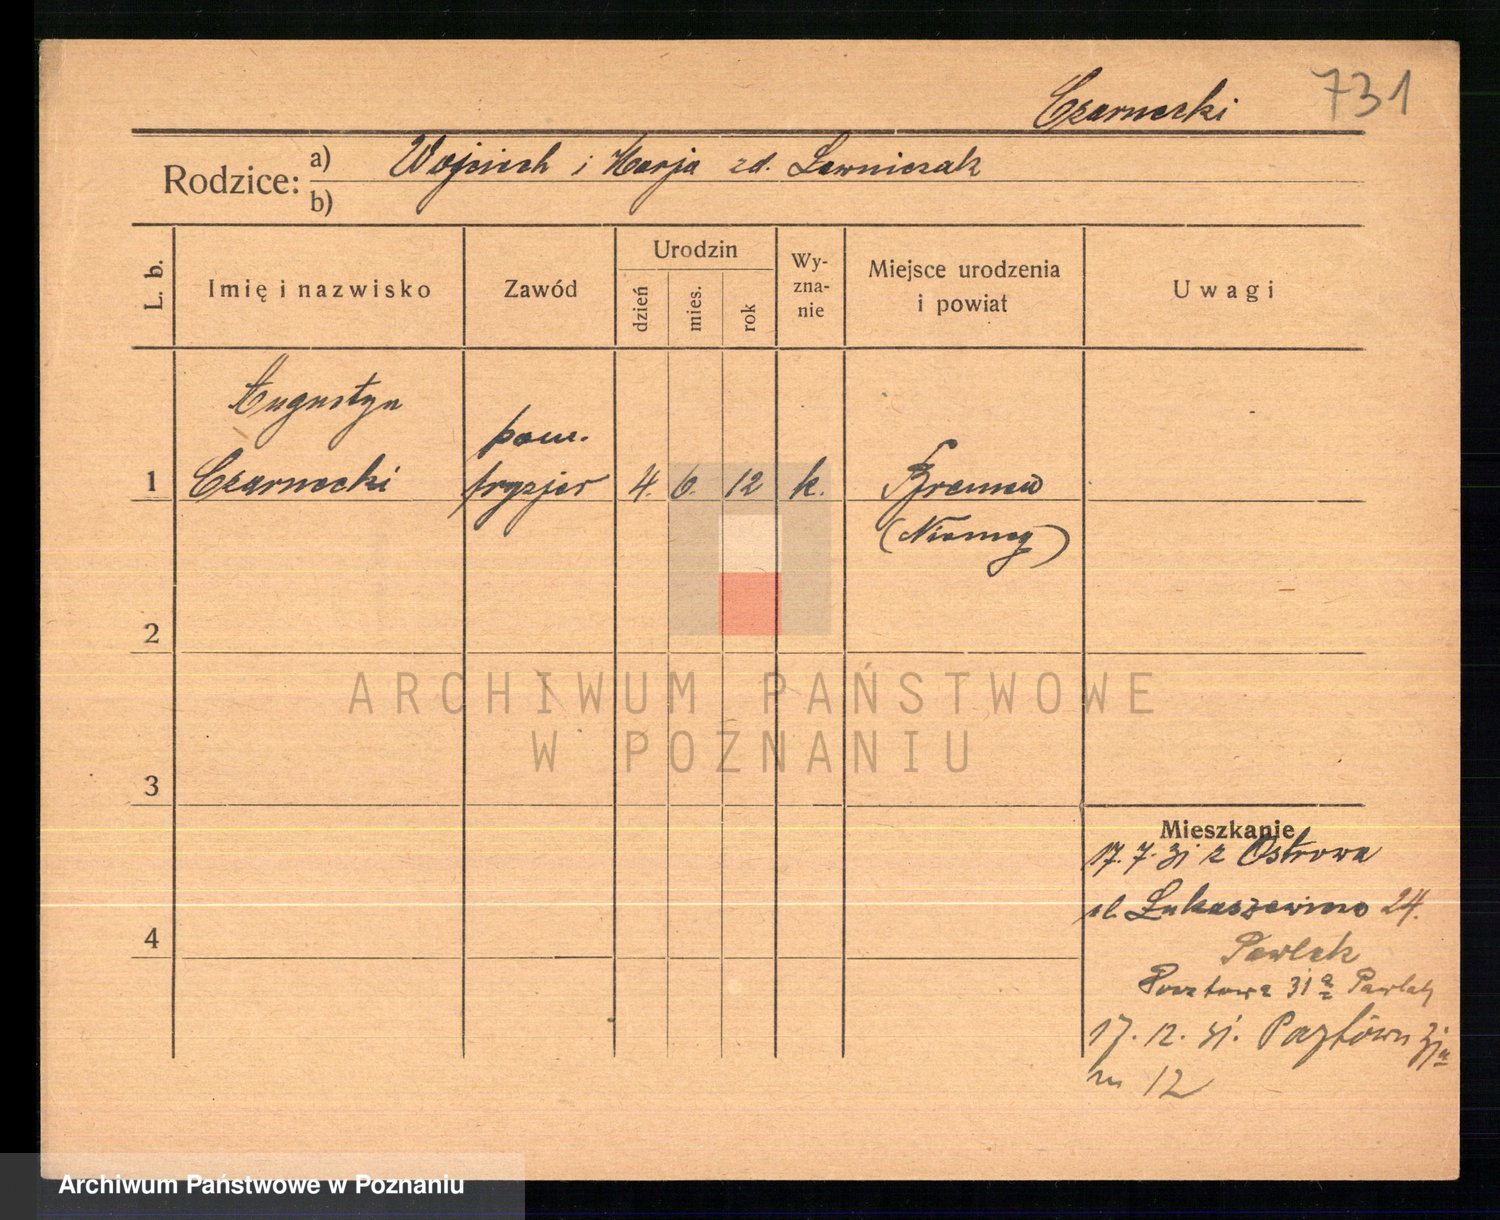 Czarnecki
731
Rodzice:
a) Wojciech i Marja zd. Ławniczak
b)
L. b.
Imię i nazwisko
Zawód
Urodzin
dzień
mies.
rok
Wy-
zna-
nie
Miejsce urodzenia
i powiat
Uwagi
Augustyn
pom.
1 Czarnecki fryzjer 4. 6. 12 k. Bremen
(Niemcy)
2
ARCHIWUM PAŃSTWOWE
W POZNANIU
3
Mieszkanie
17. 7. 31 z Ostrowa
ul. 24.
4
Pawlak
Pocztowa 31a Pawlak
17. 12. 31.
m 12
Archiwum Państwowe w Poznaniu